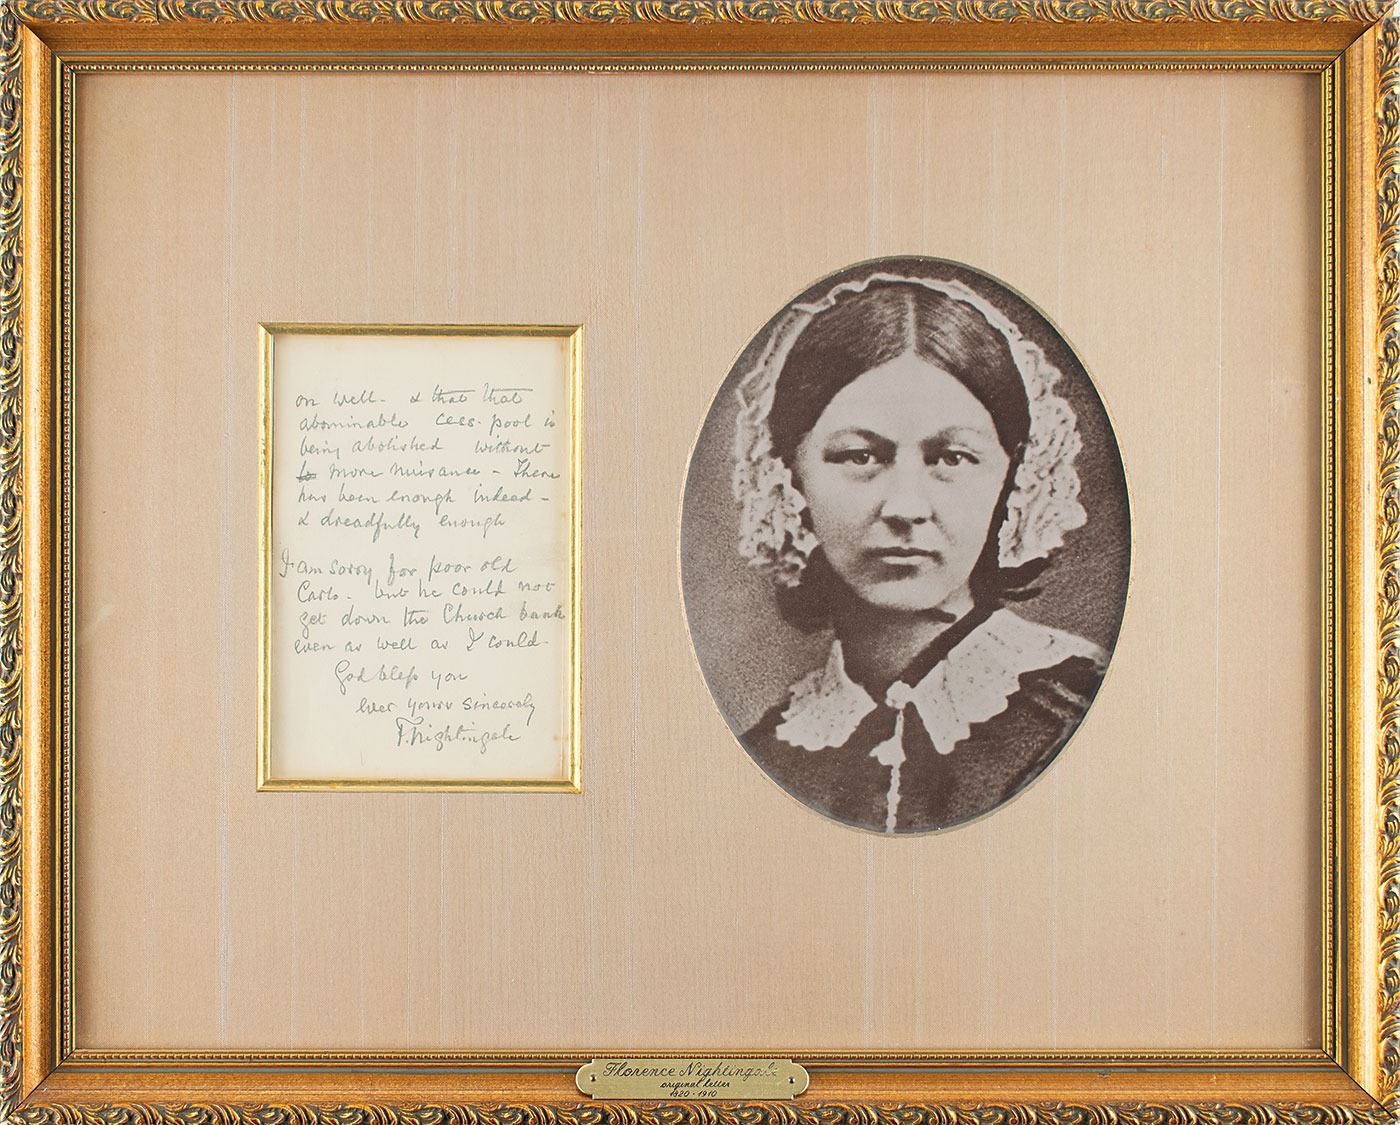 on well - & that that
abominable cess-pool is
being abolished without
more nuisance - There
has been enough indeed -
& dreadfully enough
I am sorry for poor old
Carlo - but he could not
get down the Church bank
even as well as I could -
God bless you
ever yours sincerely
F. Nightingale
Florence Nightingale
original letter
1820 - 1910